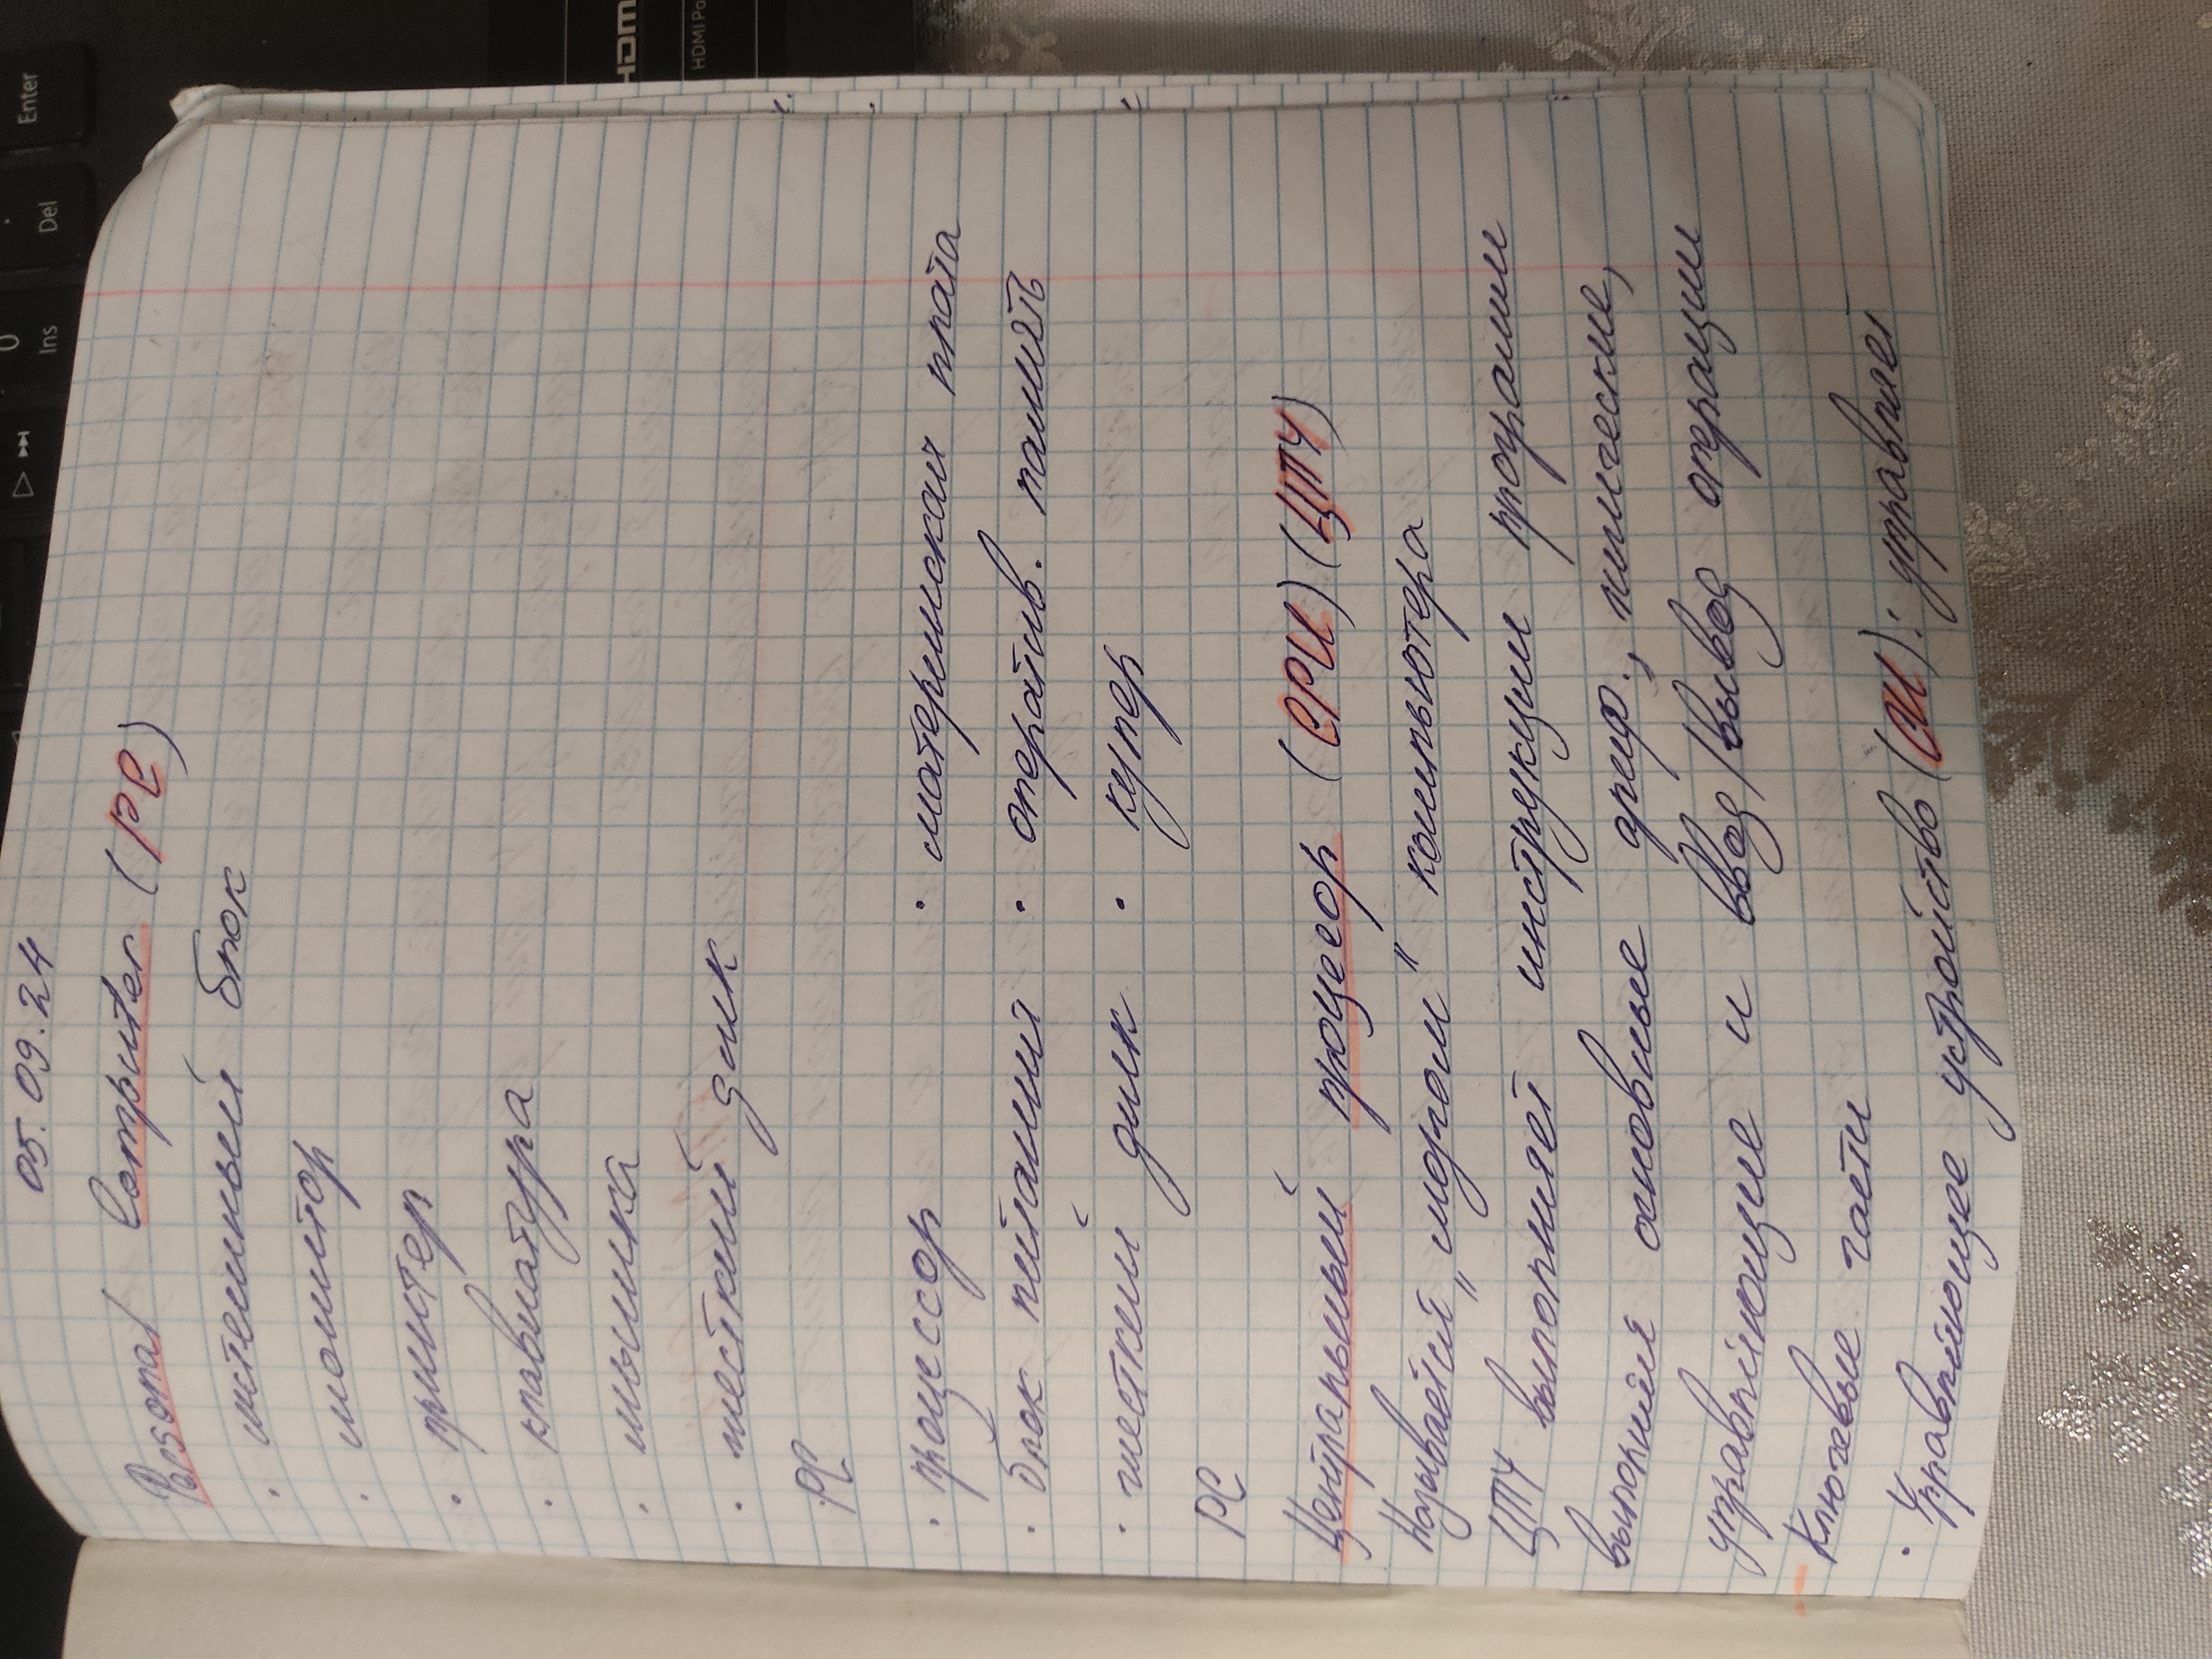 0 Ins
. Del
Enter
05.09.24
Personal Computer (PC)
· системный блок
· монитор
· принтер
· клавиатура
· мышка
· жесткий диск
PC
· процессор · материнская плата
· блок питания · оператив. память
· жесткий диск · кулер
PC
Центральный процесор (CPU) (ЦПУ)
Называется „мозгом" компьютера
ЦПУ выполняет инструкции программ
выполняя основные ариф., логические,
управляющие и ввод/вывод операции
Ключевые части
· Управляющее устройство (CU): управляет
HDMI Po